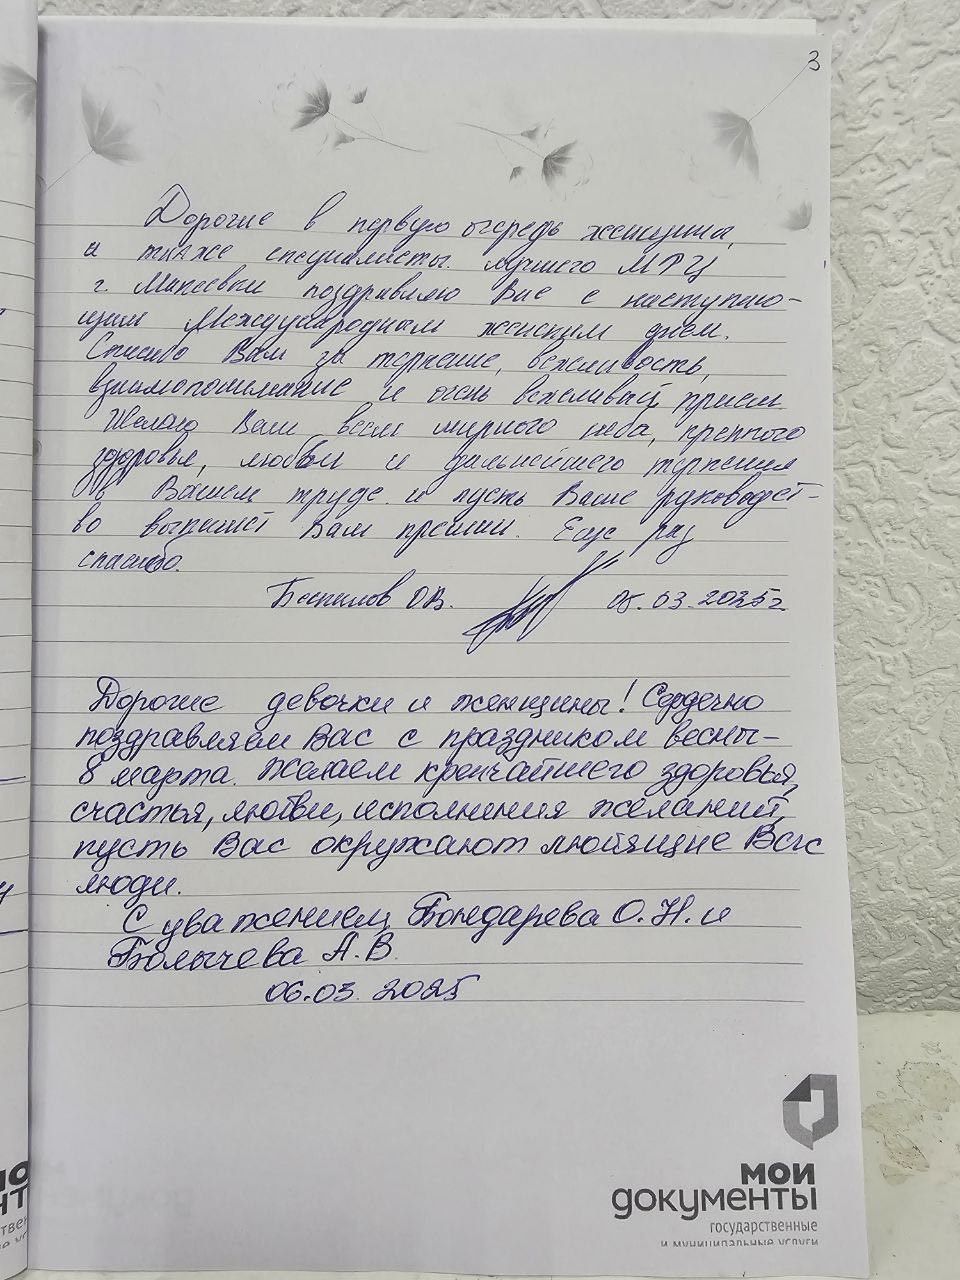 3
Дорогие в первую очередь женщины,
а также специалисты лучшего МФЦ
г. Макеевки поздравляю Вас с наступаю-
щим Международным женским днём.
Спасибо Вам за терпение, вежливость,
взаимопонимание и очень вежливый приём.
Желаю Вам всем мирного неба, крепкого
здоровья, любви и дальнейшего терпения
в Вашем труде и пусть Ваше руководст-
во выпишет Вам премии. Еще раз
спасибо.
О.В. 05.03.2025г.
Дорогие девочки и женщины! Сердечно
поздравляем Вас с праздником весны-
8 марта. Желаем крепчайшего здоровья,
счастья, любви, исполнения желаний,
пусть Вас окружают любящие Вас
люди.
С уважением, Бондарева О.Н. и
Болычева А.В.
06.03.2025
мои
документы
государственные
и муниципальные услуги